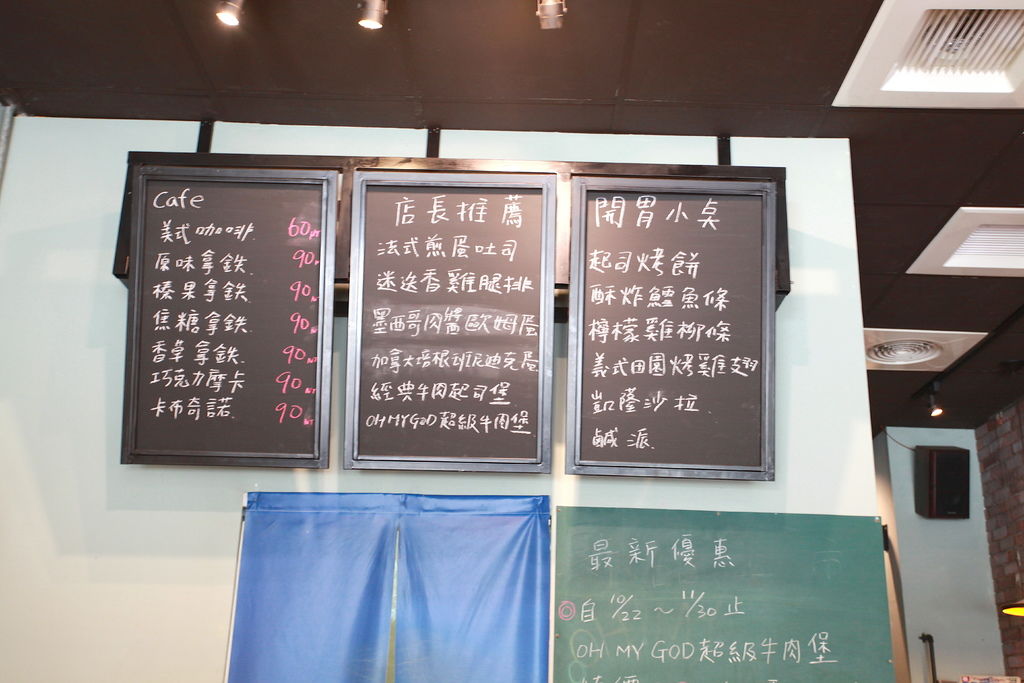 Cafe
美式咖啡 60
原味拿鐵 90
榛果拿鐵 90
焦糖拿鐵 90
香草拿鐵 90
巧克力摩卡 90
卡布奇諾 90
店長推薦
法式煎蛋吐司
迷迭香雞腿排
墨西哥肉醬歐姆蛋
加拿大培根班尼迪克蛋
經典牛肉起司堡
OH MY GOD 超級牛肉堡
開胃小桌
起司烤餅
酥炸鱈魚條
檸檬雞柳條
義式田園烤雞翅
凱薩沙拉
鹹派
最新優惠
◎自 10/22 ~ 11/30 止
OH MY GOD 超級牛肉堡